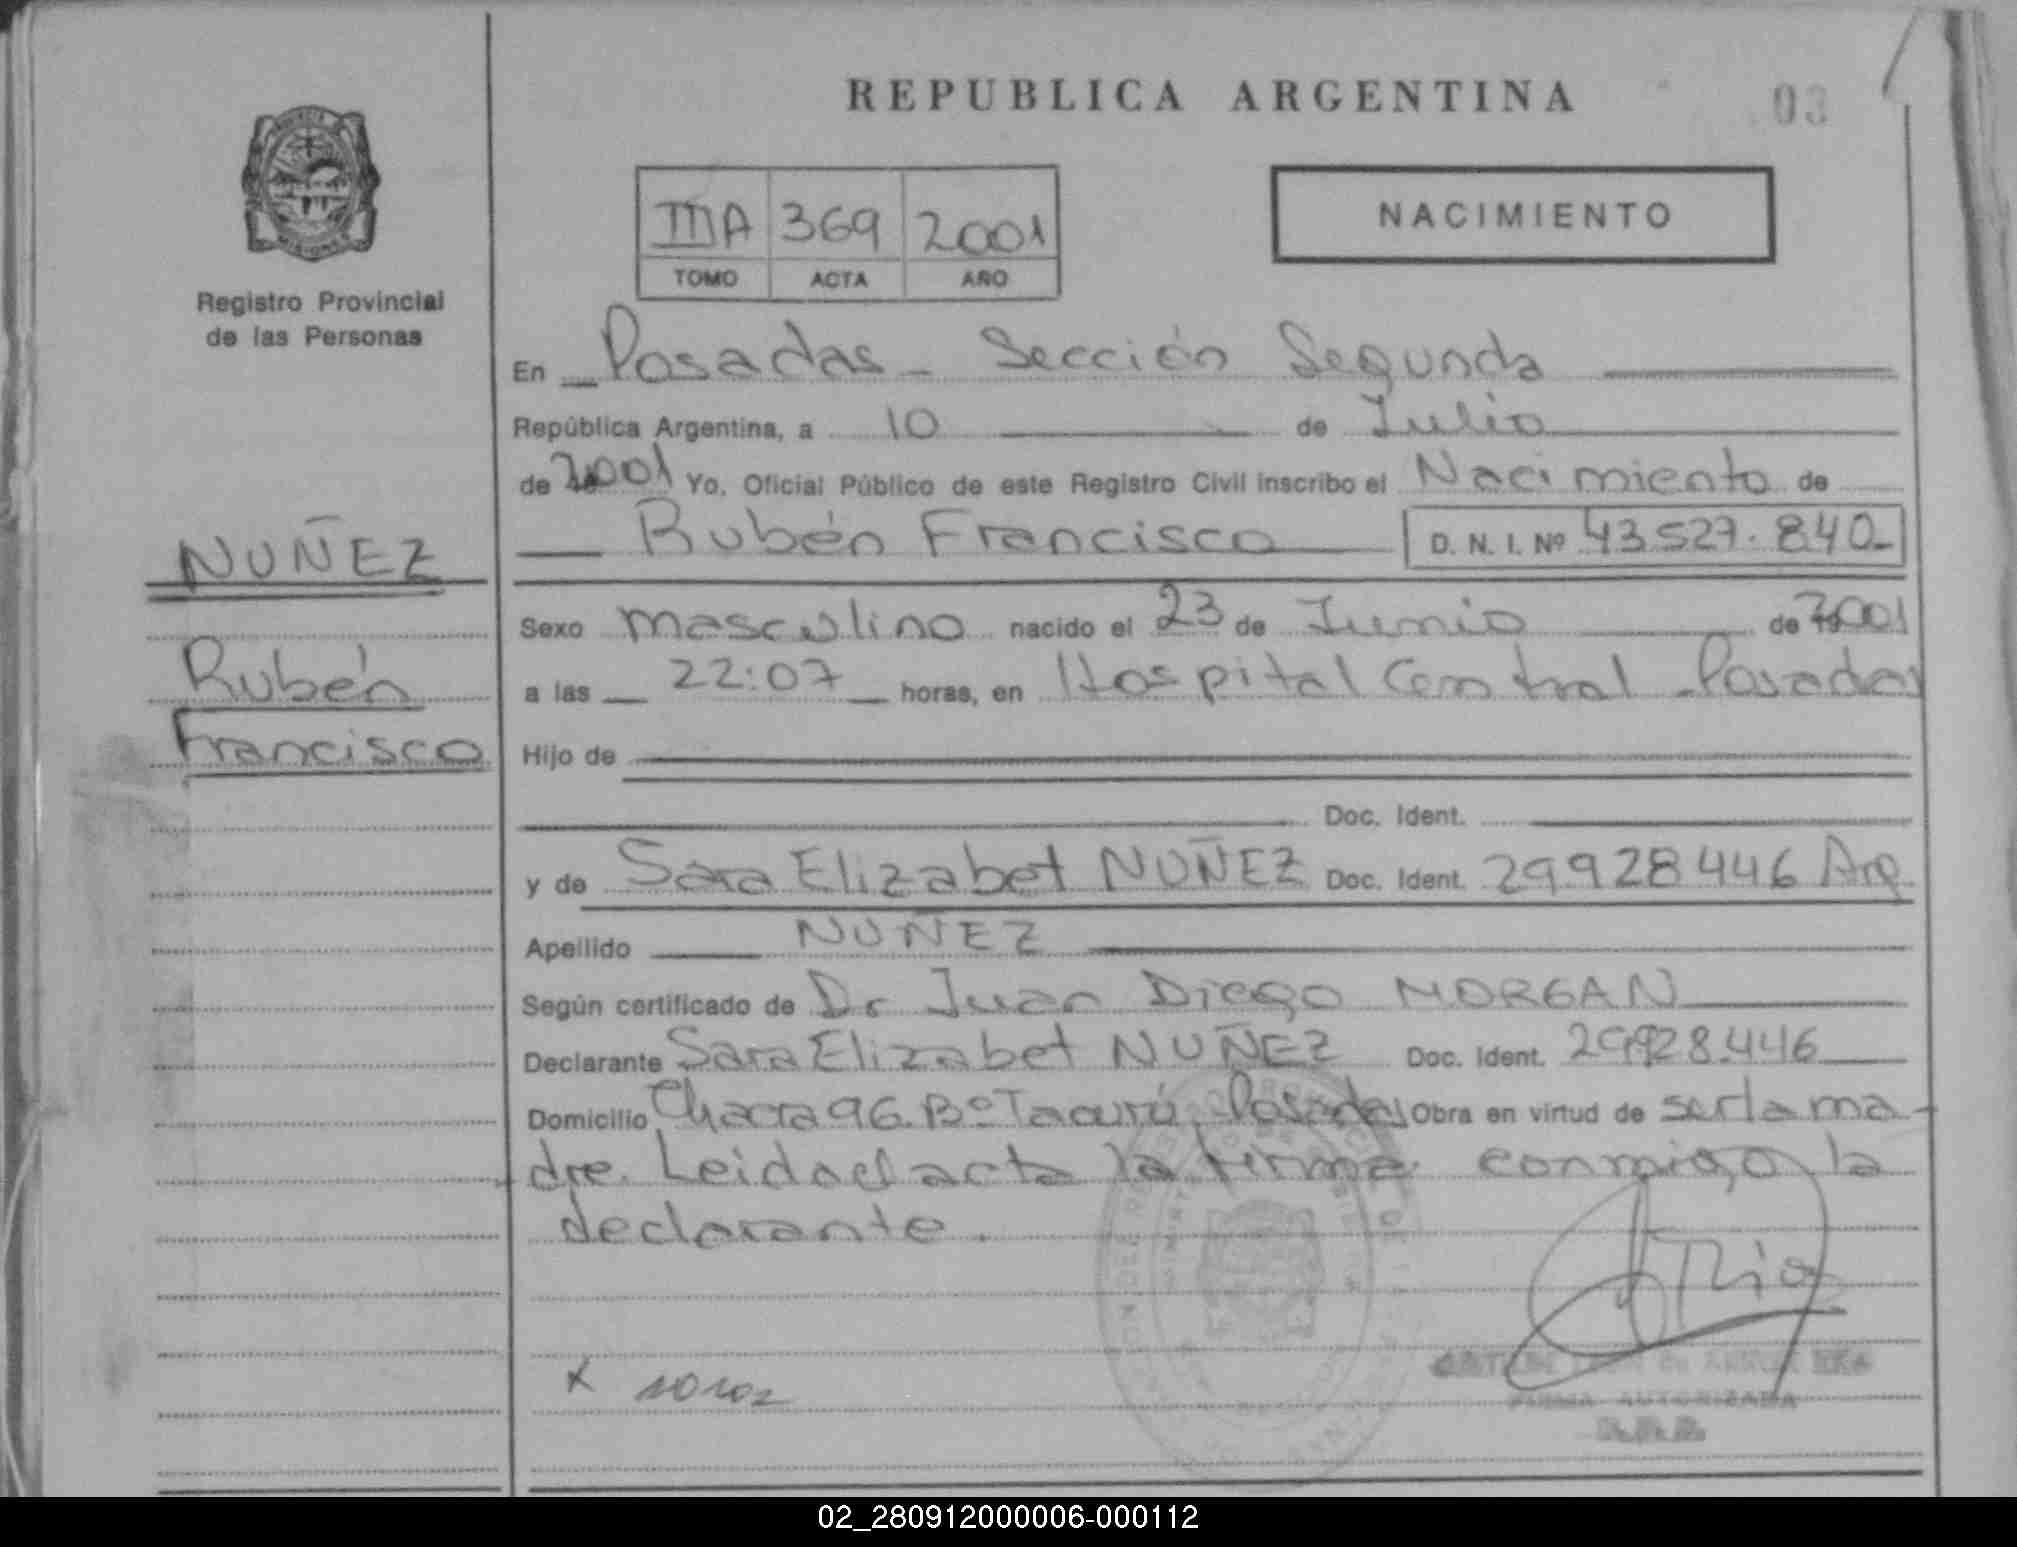 REPUBLICA ARGENTINA
03
PROVINCIA
MISIONES
Registro Provincial
de las Personas
IIIA 369 2001
TOMO ACTA AÑO
NACIMIENTO
En Posadas - Sección Segunda
República Argentina, a 10 de Julio
de 2001 Yo, Oficial Público de este Registro Civil inscribo el Nacimiento de
Rubén Francisco D. N. I. Nº 43.527.840-
NUÑEZ
Rubén
Francisco
Sexo masculino nacido el 23 de Junio de 2001
a las 22:07 horas, en Hospital Central - Posadas
Hijo de
Doc. Ident.
y de Sara Elizabet NUÑEZ Doc. Ident. 29.928.446 Arg.
Apellido NUÑEZ
Según certificado de Dr Juan Diego MORGAN
Declarante Sara Elizabet NUÑEZ Doc. Ident. 29.928.446
Domicilio Chacra 96. Bº Tacurú. Posadas Obra en virtud de ser la ma-
dre. Leida el acta la firma conmigo la
declarante.
FIRMA AUTORIZADA
R.P.P.
02_280912000006-000112